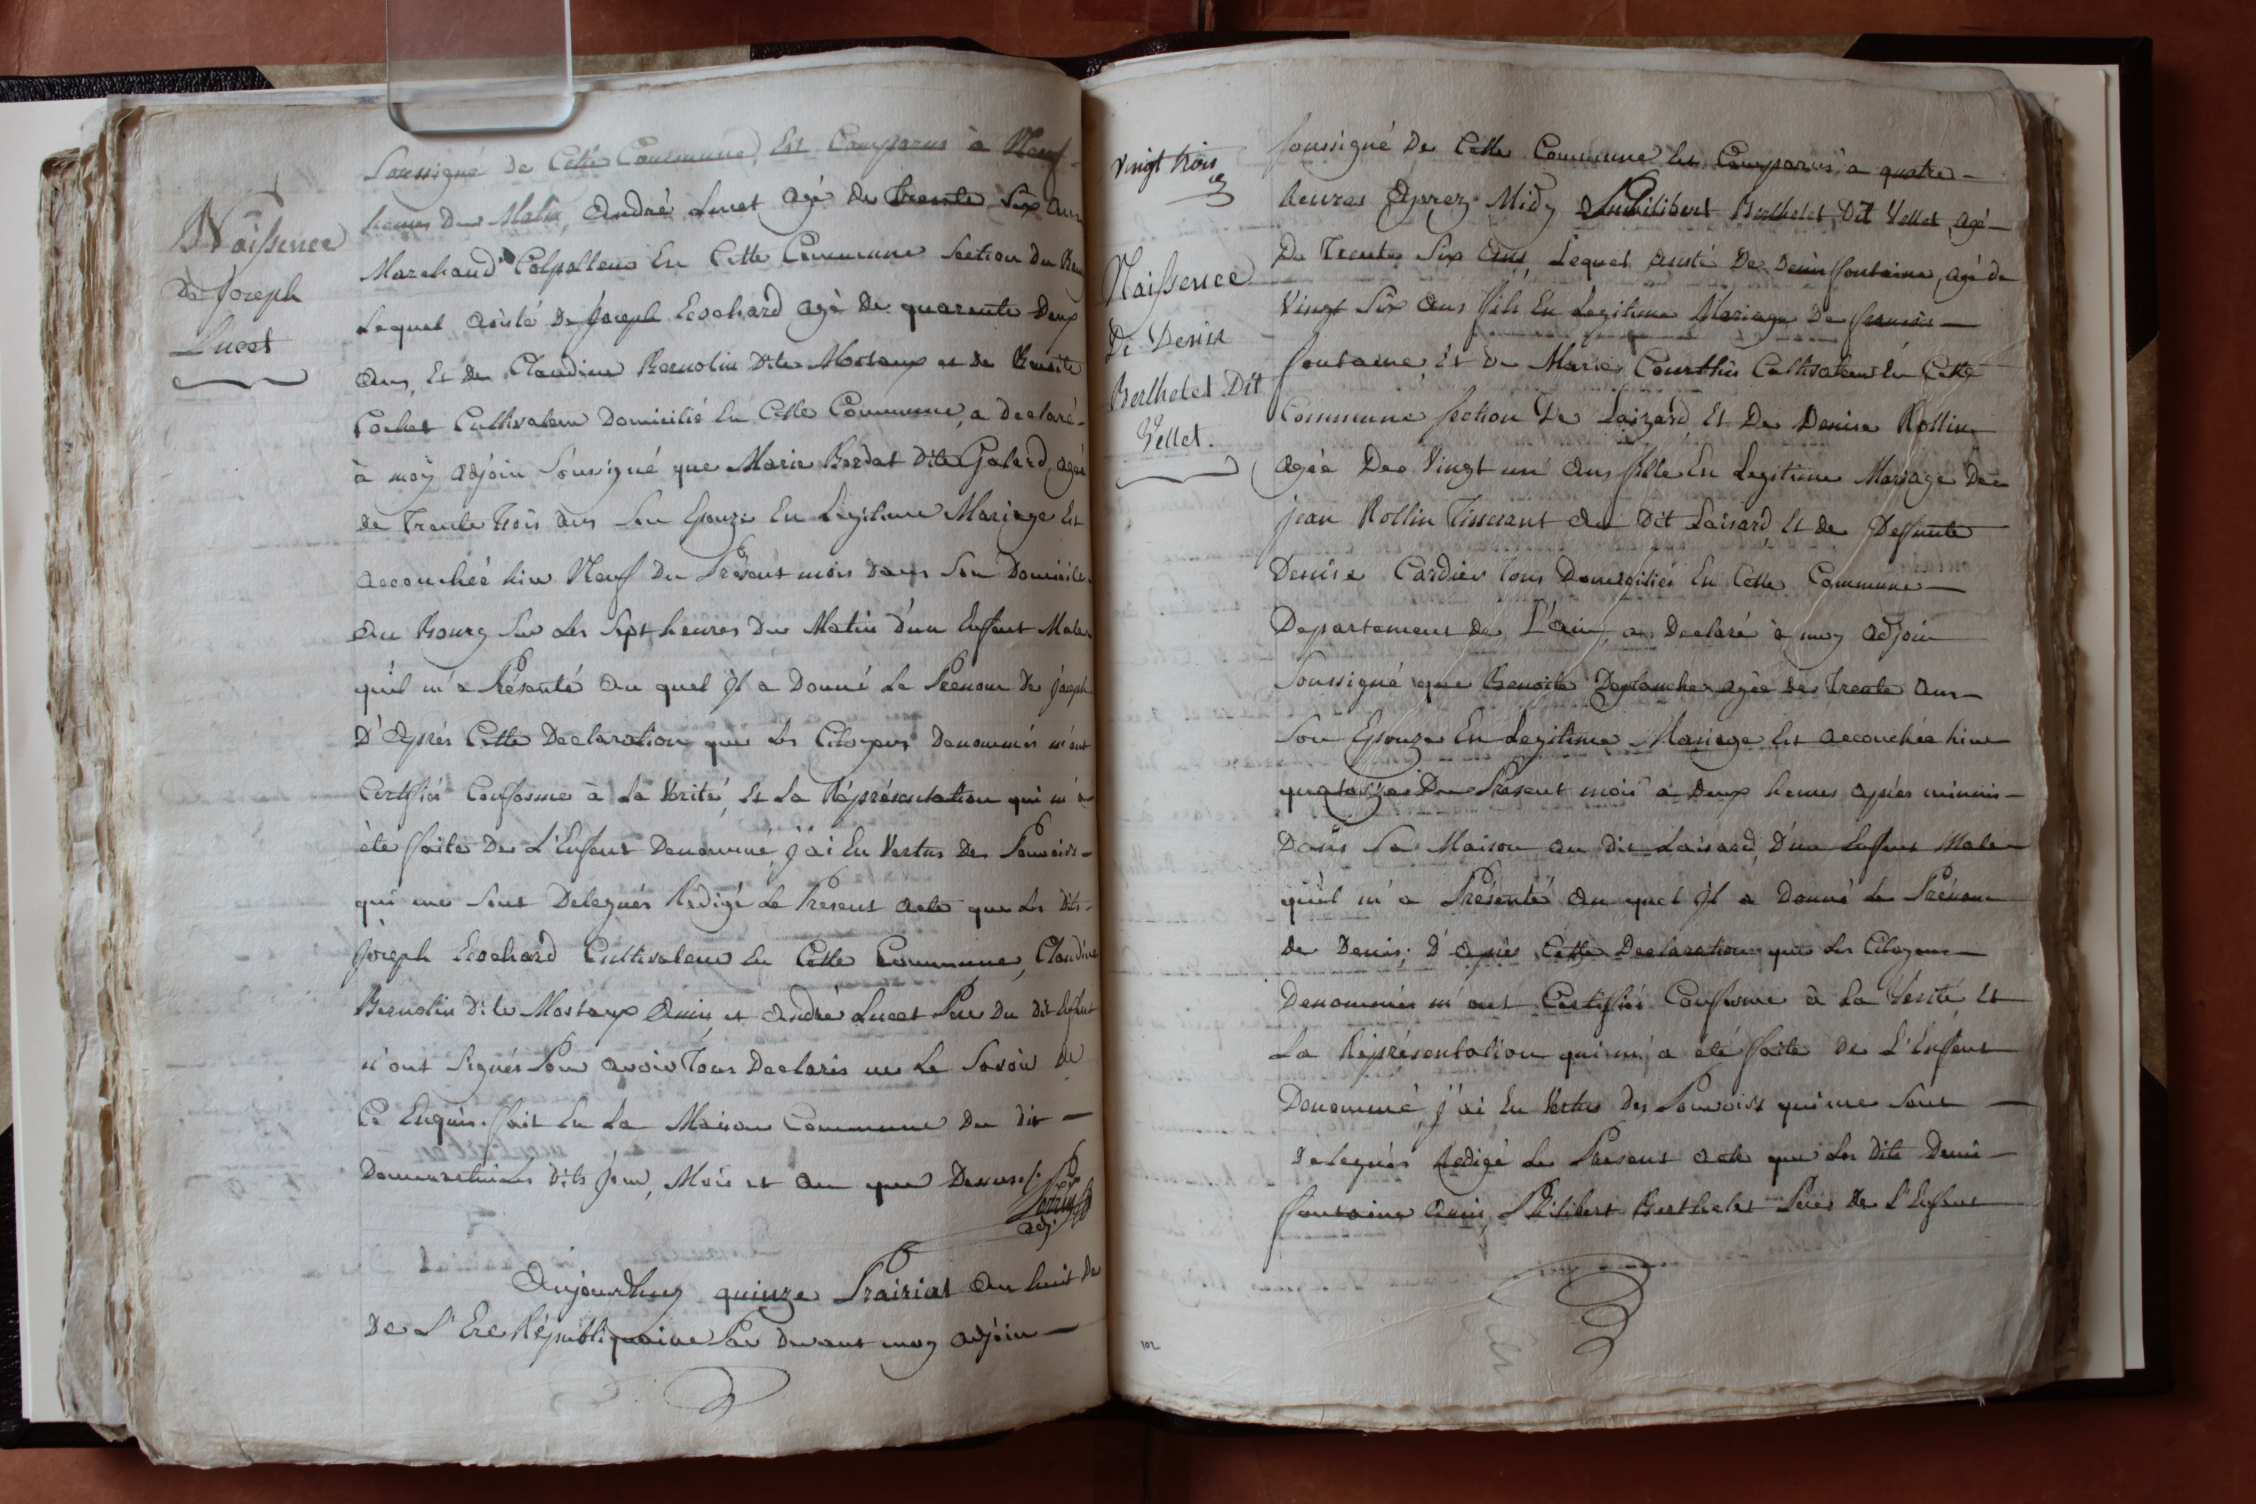 Naissence
De Joseph
Lucet
Soussigné de Cette Commune, Est Comparus à Neuf
heures Du Matin, André Lucet agé De Trente Six ans
Marchand Colpolteur En Cette Commune Section Du Bourg
Lequel assisté De Joseph Ecochard agé De quarente Deux
ans, Et De Claudine Bernolin Dite Mostaux et De Benoite
Cultivateur Domicilié En Cette Commune, a Declaré
à moÿ adjoin Sousigné que Marie Bordat Dite Galard, agée
de Trente Trois ans Son Epouze En Legitime Mariage Est
accouchée hier Neuf Du Présent mois Dans Son Domicile
au Bourg Sur Les Sept heures Du Matin d'un Enfant Male
qu'il m'a Présenté au quel Jl a Donné Le Prénom De Joseph
D'Après Cette Declaration que Les Citoyens Denommés m'ont
Certifiés Conforme à La Vérité, Et La Réprésentation qui m'a
été faite De L'Enfent Denommé, j'ai En Vertus Des Pouvoirs
qui me Sont Delegués Redigé Le Présent acte que Les Dits
Joseph Ecochard Cultivateur En Cette Commune, Claudine
Bernolin Dite Mostaux Amis et André Lucet Pere Du Dit Enfent
n'ont Signés Pour avoir Tous Declarés ne Le Savoir De
Ce Enquis. fait En La Maison Commune Du Dit
Les Dits Jour, Mois et an que Dessus
adj.
Aujourdhuy quinze Prairial An huit De
De L'Ere Républiquaine Par Devant moy adjoin
Vingt trois
Naissence
De Denis
Berthelet Dit
Vellet.
Soussigné De Cette Commune Est Comparus a quatre
heures Aprez Midy Philibert Berthelet Dit Vellet, agé
De Trente Six ans, Lequel assisté De Denis fontaine, agé de
Vingt Six ans fils En Legitime Mariage De francois
fontaine Et De Marie Courthin Cultivateur En Cette
Commune Section De Laizard Et De Denise Rollin
agée De Vingt un ans fille En Legitime Mariage De
jean Rollin Tisserant Au Dit Laisard, Et de Deffunte
Denise Cardier Tous Domiciliés En Cette Commune
Departement De L'ain, a Declaré à moy adjoin
Soussigné que Benoite Deplanche agée De Trente Ans
Son Epouze En Legitime Mariage Est accouchée hier
quatorze Du Present mois à Deux heures après minuis
Dans Sa Maison au Dit Laisard, D'un Enfent Male
qu'il m'a Présenté Au quel Jl a Donné Le Prénom
De Denis; D'après Cette Declaration que Les Citoyens
Denommés m'ont Certiffiés Conforme à La Vérité, Et
La Réprésentation qui m'a été faite De L'Enfent
Denommé, j'ai En Vertus Des Pouvoirs qui me Sont
Delegués Redigé Le Présent acte que Les Dits Denis
fontaine amis, Philibert Berthelet Pere De L'Enfent
102